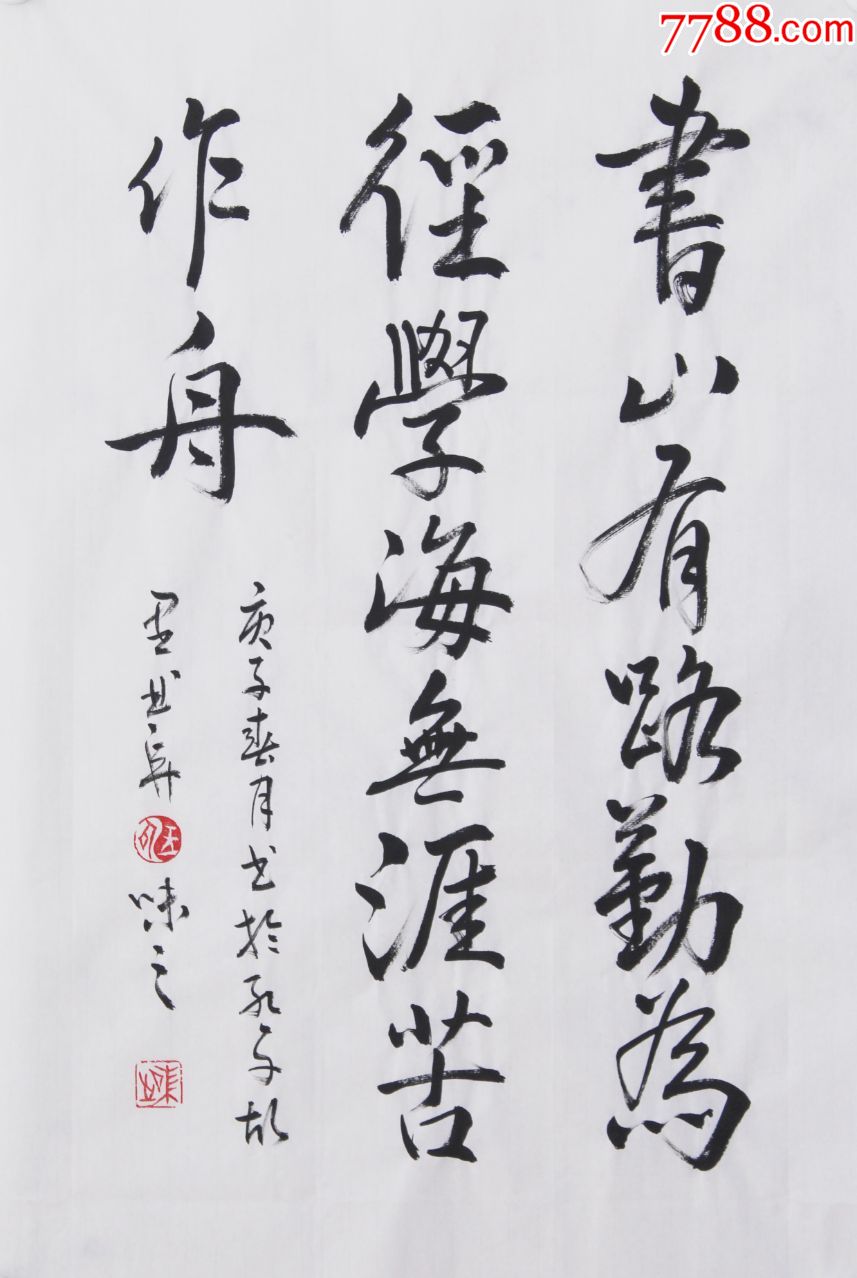 7788.com
書山有路勤為
徑學海無涯苦
作舟
庚子春月书於孔子故
里
味之